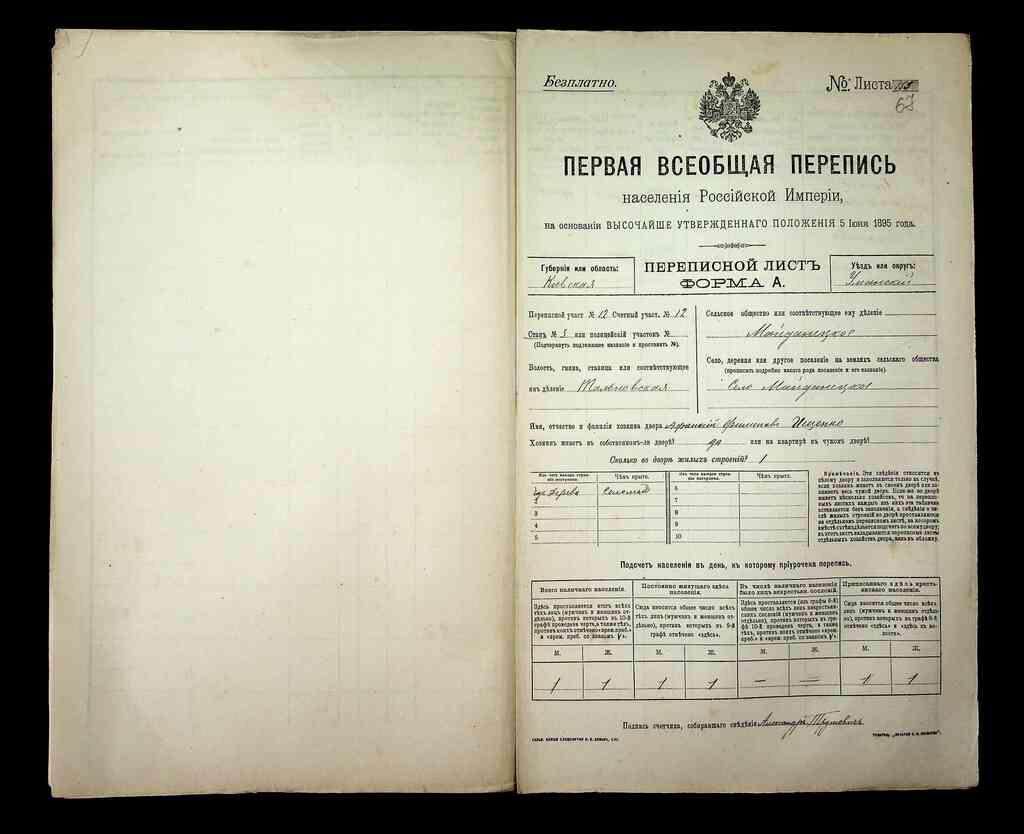 Безплатно.
№ Листа
67
ПЕРВАЯ ВСЕОБЩАЯ ПЕРЕПИСЬ
населенія Россійской Имперіи,
на основаніи ВЫСОЧАЙШЕ УТВЕРЖДЕННАГО ПОЛОЖЕНІЯ 5 Іюня 1895 года.
Губернія или область:
Кіевская
ПЕРЕПИСНОЙ ЛИСТЪ
ФОРМА А.
Уѣздъ или округъ:
Уманскій
Переписной участ. № 12 Счетный участ. № 12
Станъ № 5 или полицейскій участокъ №
(Подчеркнуть подлежащее названіе и проставить №).
Волость, гмина, станица или соотвѣтствующее
имъ дѣленіе Тальновская
Сельское общество или соотвѣтствующее ему дѣленіе
Майданецкое
Село, деревня или другое поселеніе на земляхъ сельскаго общества
(прописать подробно какого рода поселеніе и его названіе).
Село Майданецкое
Имя, отчество и фамилія хозяина двора Ищенко
Хозяинъ живетъ въ собственномъ-ли дворѣ? да или на квартирѣ въ чужомъ дворѣ?
Сколько во дворѣ жилыхъ строеній? 1
Изъ чего каждое строеніе построено.
Чѣмъ крыто.
Изъ чего каждое строеніе построено.
Чѣмъ крыто.
изъ дерева
соломой
2
3
4
5
6
7
8
9
10
Примѣчаніе. Эти свѣдѣнія относятся къ
цѣлому двору и заполняются только въ случаѣ,
если хозяинъ живетъ въ своемъ дворѣ или занимаетъ весь чужой дворъ. Если-же во дворѣ
живетъ нѣсколько хозяйствъ, то на переписныхъ листахъ каждаго изъ нихъ эта табличка
оставляется безъ заполненія, а свѣдѣнія о числѣ жилыхъ строеній во дворѣ проставляются
на отдѣльномъ переписномъ листѣ, на которомъ
Подсчетъ населенія въ день, къ которому пріурочена перепись.
Всего наличнаго населенія.
Постоянно живущаго здѣсь населенія.
Въ числѣ наличнаго населенія было лицъ некрестьян. сословій.
Приписаннаго здѣсь крестьянскаго населенія.
Здѣсь проставляется итогъ всѣхъ
тѣхъ лицъ (мужчинъ и женщинъ отдѣльно), противъ которыхъ въ 10-й
графѣ проведена черта, а также тѣхъ,
противъ коихъ отмѣчено «врем. преб.»
и «врем. преб. со знакомъ V».
Сюда вносится общее число всѣхъ
тѣхъ лицъ (мужчинъ и женщинъ отдѣльно), противъ которыхъ въ 9-й
графѣ отмѣчено «здѣсь».
Здѣсь проставляется (изъ графы 8-й)
общее число всѣхъ лицъ некрестьянскихъ сословій (мужчинъ и женщинъ
отдѣльно), противъ которыхъ въ графѣ 10-й проведена черта, а также
тѣхъ, противъ коихъ отмѣчено «врем.
преб.» и «врем. преб. со знакомъ V».
Сюда вносится общее число всѣхъ
лицъ (мужчинъ и женщинъ отдѣльно), противъ которыхъ въ графѣ 8-й
отмѣчено «здѣсь» и «здѣсь къ волости».
М. Ж. М. Ж. М. Ж. М. Ж.
1 1 1 1 — — 1 1
Подпись счетчика, собиравшаго свѣдѣнія Александръ